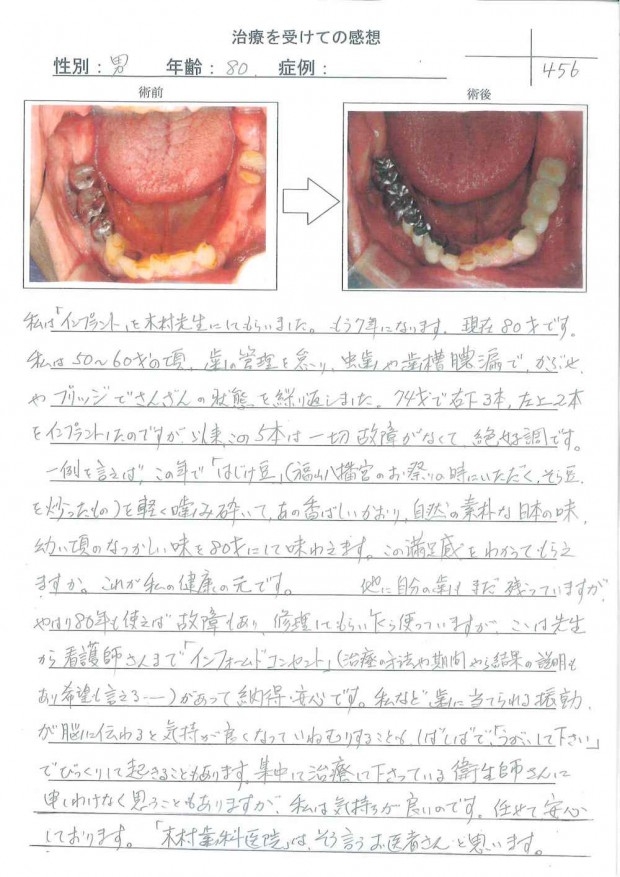 治療を受けての感想
性別：男　年齢：80　症例：
456
術前
術後
私は「インプラント」を木村先生にしてもらいました。もう7年になります。現在80才です。
私は50～60才の頃、歯の管理を怠り、虫歯や歯槽膿漏で、かぶせ
やブリッジでさんざんの状態を繰り返しました。74才で右下3本、左上2本
をインプラントしたのですが、以来この5本は一切故障がなくて、絶好調です。
一例を言えば、この年で「はじけ豆」（福山八幡宮のお祭りの時にいただく、そら豆
を炒ったもの）を軽く噛み砕いて、あの香ばしいかおり、自然の素朴な日本の味、
幼い頃のなつかしい味を80才にして味わえます。この満足感をわかってもらえ
ますか。これが私の健康の元です。　他に自分の歯もまだ残っていますが
やはり80年も使えば故障もあり、修理してもらい乍ら使っていますが、ここは先生
から看護師さんまで「インフォームドコンセント」（治療の方法や期間やら結果の説明も
あり希望も言える――）があって納得・安心です。私など歯に当てられる振動
が脳に伝わると気持が良くなっていねむりすることも、しばしばで、「うがいして下さい」
でびっくりして起きることもあります。集中して治療して下さっている衛生師さんに
申しわけなく思うこともありますが、私は気持ちが良いのです。任せて安心
しております。「木村歯科医院」は、そう言うお医者さんと思います。